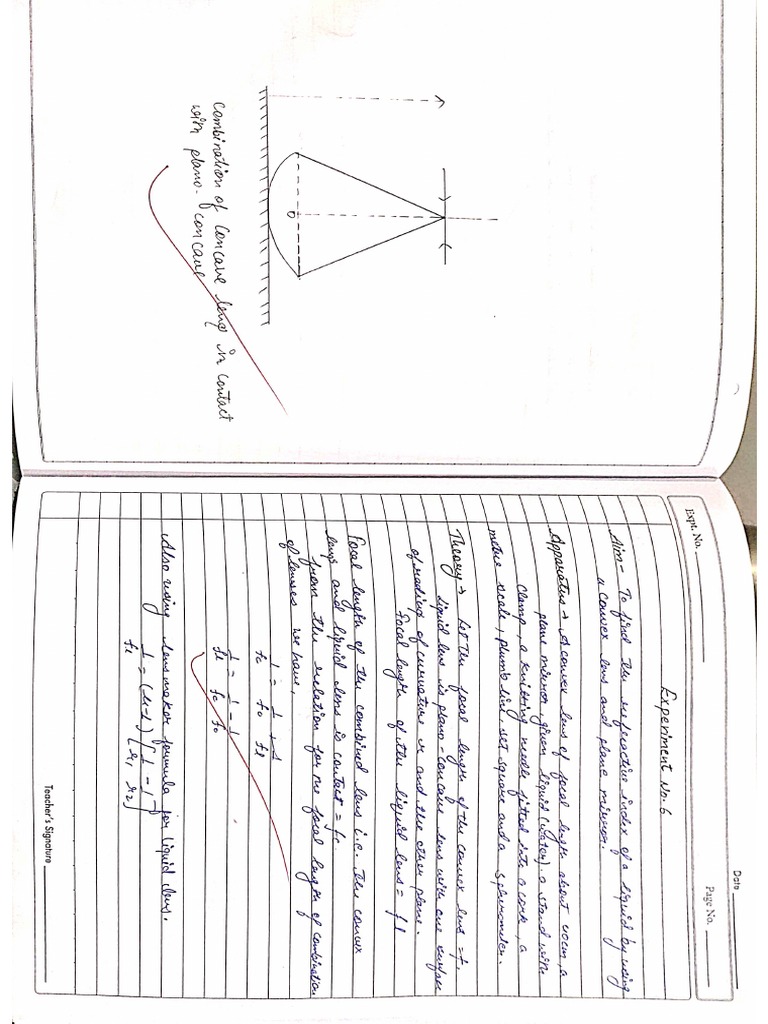 O
Combination of Concave lens in contact
with plano-concave
Date
Expt. No.
Page No.
Experiment No. 6
Aim - To find the refractive index of a liquid by using
a convex lens and plane mirror.
Apparatus → A convex lens of focal length about 20cm, a
plane mirror, given liquid (water), a stand with
clamp, a knitting needle fitted into a cork, a
metre scale, plumb line, set square and a spherometer.
Theory → Let the focal length of the convex lens = f.
liquid lens is plano-concave lens with one surface
of radius of curvature r and the other plane.
Focal length of the liquid lens = fl
Focal length of the combined lens i.e. the convex
lens and liquid lens is contact = fc
from the relation for the focal length of combination
of lenses we have,
1/fc = 1/fo + 1/fl
1/fl = 1/fc - 1/fo
Also using lens maker formula for liquid lens.
1/fl = (μ-1) [1/r1 - 1/r2]
Teacher's Signature